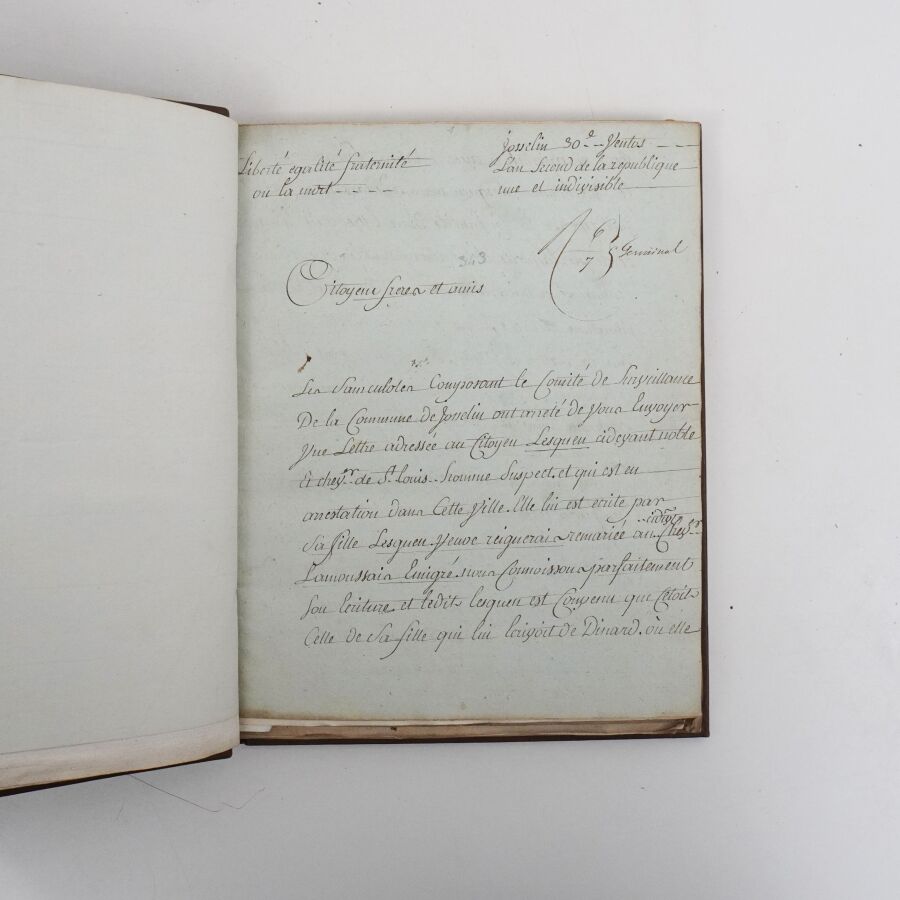 Liberté égalité fraternité
ou la mort - - - -
Josselin 30.e - Ventos - - -
L'an Second de la republique
une et indivisible
6
7 Germinal
343
Citoyens freres et amis
Les Sansculotes Composant le Comité de Surveillance
De la Commune de Josselin ont arreté de Vous Envoyer
Une Lettre adressée au Citoyen Lesquen cidevant noble
Et chev.er de S.t Louis - homme Suspect, et qui est en
arrestation dans Cette Ville. Elle lui est ecrite par
Sa fille Lesquen Veuve remariée au cidev.t Chev.r
Lamoussais Emigré. nous Connoissons parfaitement
Son Ecriture, et ledit Lesquen est Convenu que C'étoit
Celle de Sa fille qui lui Ecrivoit de Dinard. où elle